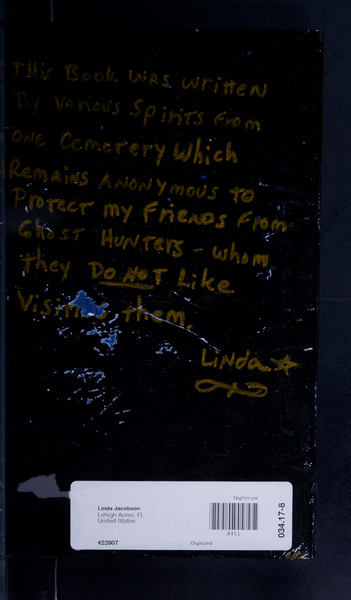 This Book was written
By Various Spirits From
one Cemetery Which
Remains Anonymous to
Protect my Friends From
Ghost Hunters - whom
they Do Not Like
Visiting them.
Linda
Nightmare
Linda Jacobson
Lehigh Acres, FL
United States
8451
034.17-8
#22807
Digitized